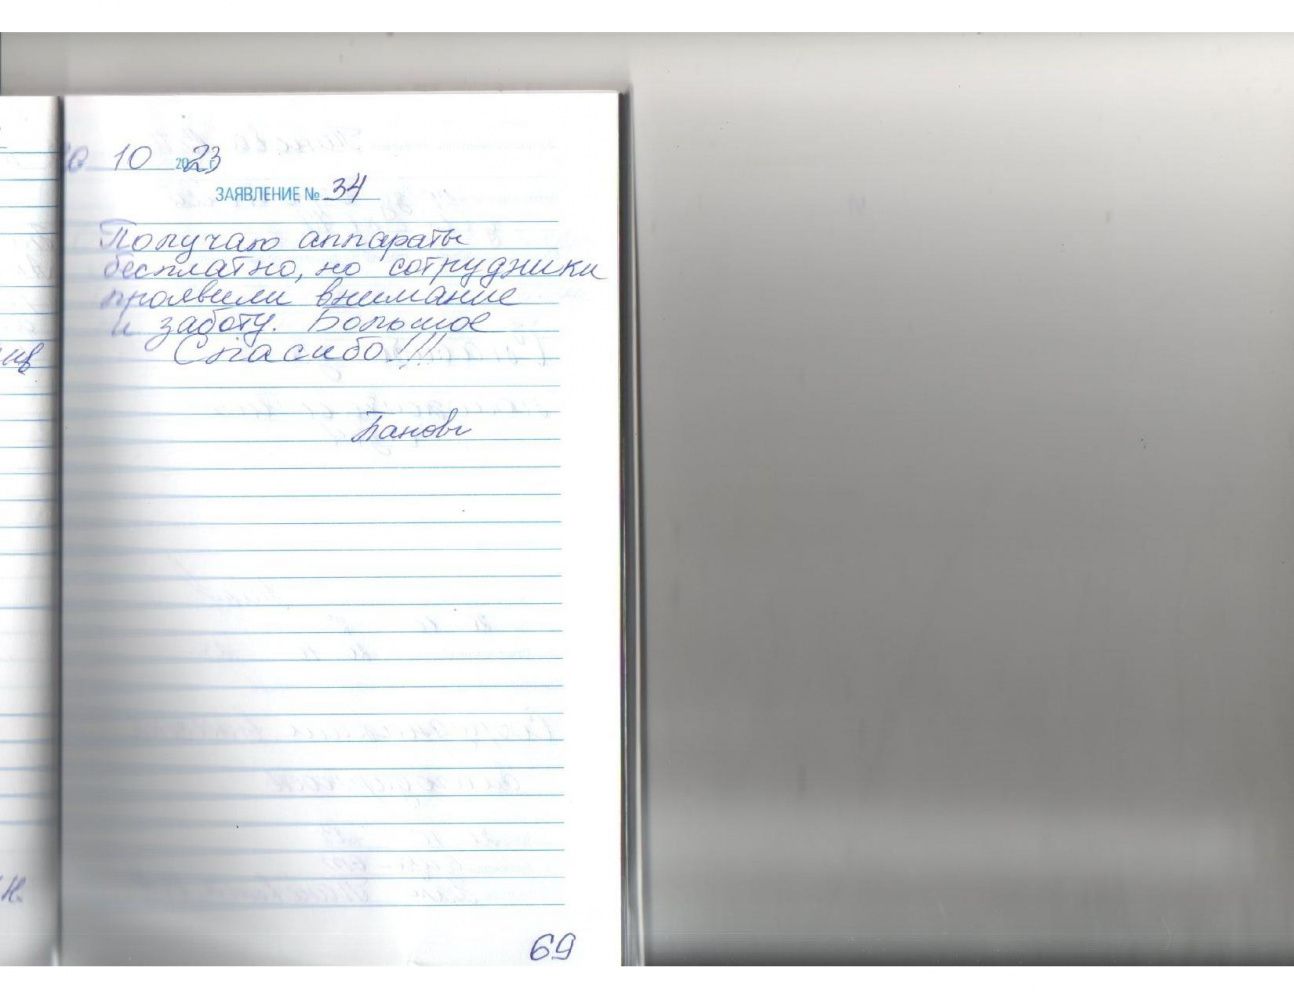 10 2023
ЗАЯВЛЕНИЕ № 34
Получаю аппараты
бесплатно, но сотрудники
проявили внимание
и заботу. Большое
Спасибо!!!
69